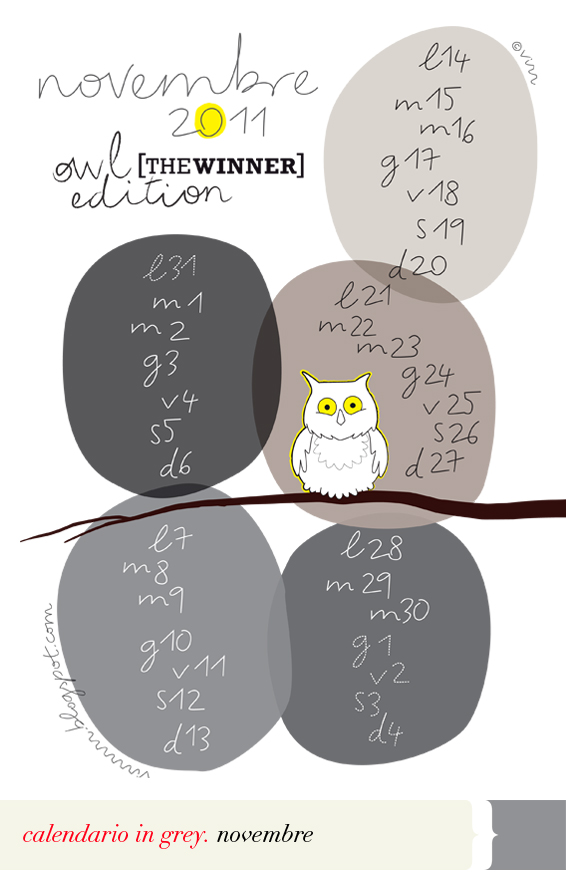 novembre
2011
owl [THEWINNER]
edition
©vim
l31
m1
m2
g3
v4
s5
d6
l7
m8
m9
g10
v11
s12
d13
l14
m15
m16
g17
v18
s19
d20
l21
m22
m23
g24
v25
s26
d27
l28
m29
m30
g1
v2
s3
d4
calendario in grey. novembre